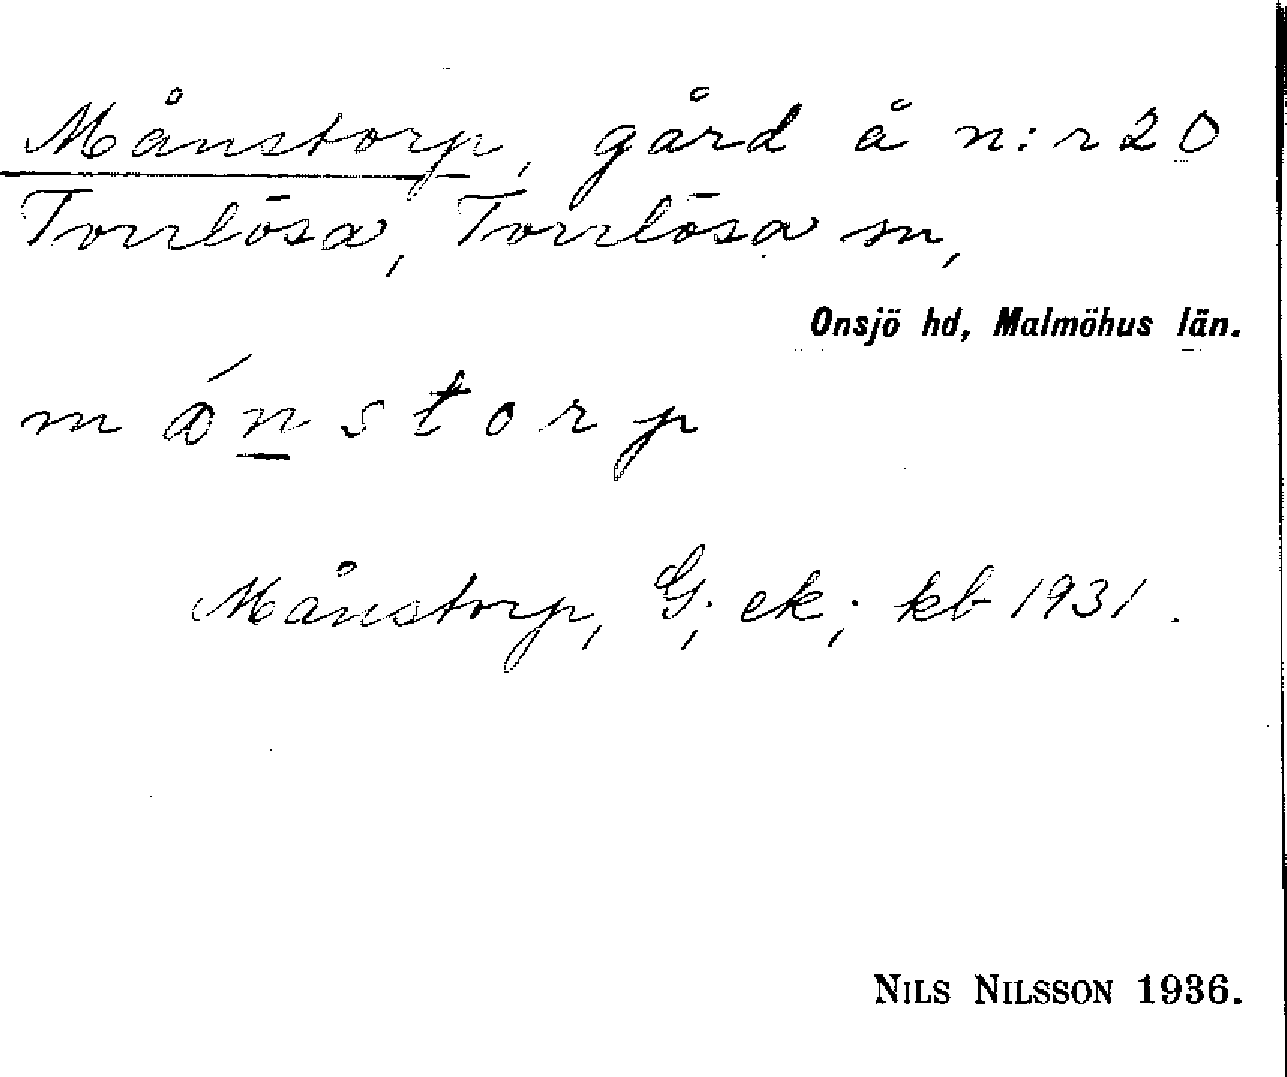 Månstorp, gård å n:r 20
Torrlösa, Torrlösa sn,
Onsjö hd, Malmöhus län.
mɷ́nstorp
Månstorp, G; ek; kb 1931.
NILS NILSSON 1936.